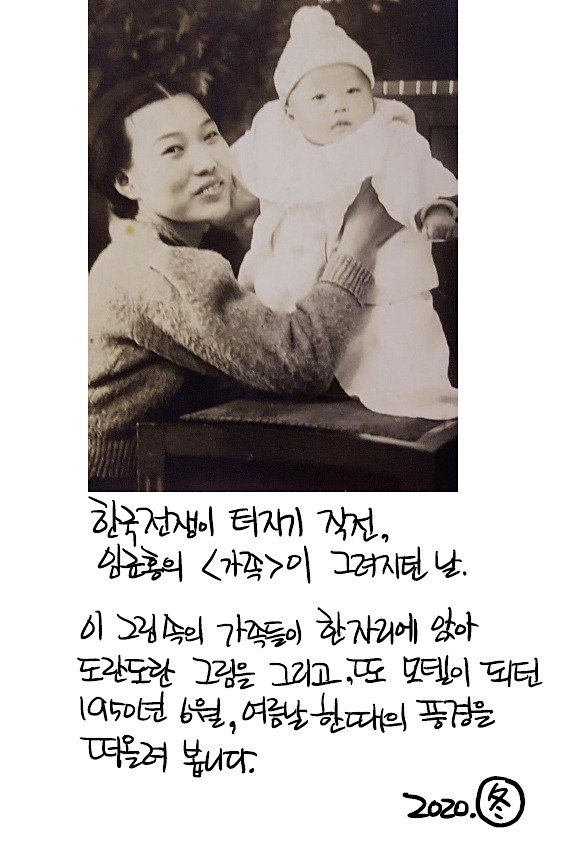 한국전쟁이 터지기 직전,
임군홍의 <가족>이 그려지던 날.
이 그림속의 가족들이 한자리에 앉아
도란도란 그림을 그리고, 또 모델이 되던
1950년 6월, 여름날 한때의 풍경을
떠올려 봅니다.
2020. 冬